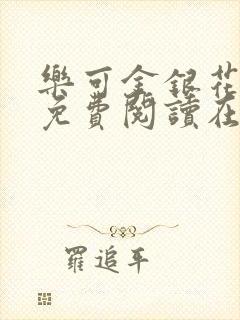 樂可金銀花
免費閱讀在
羅追平